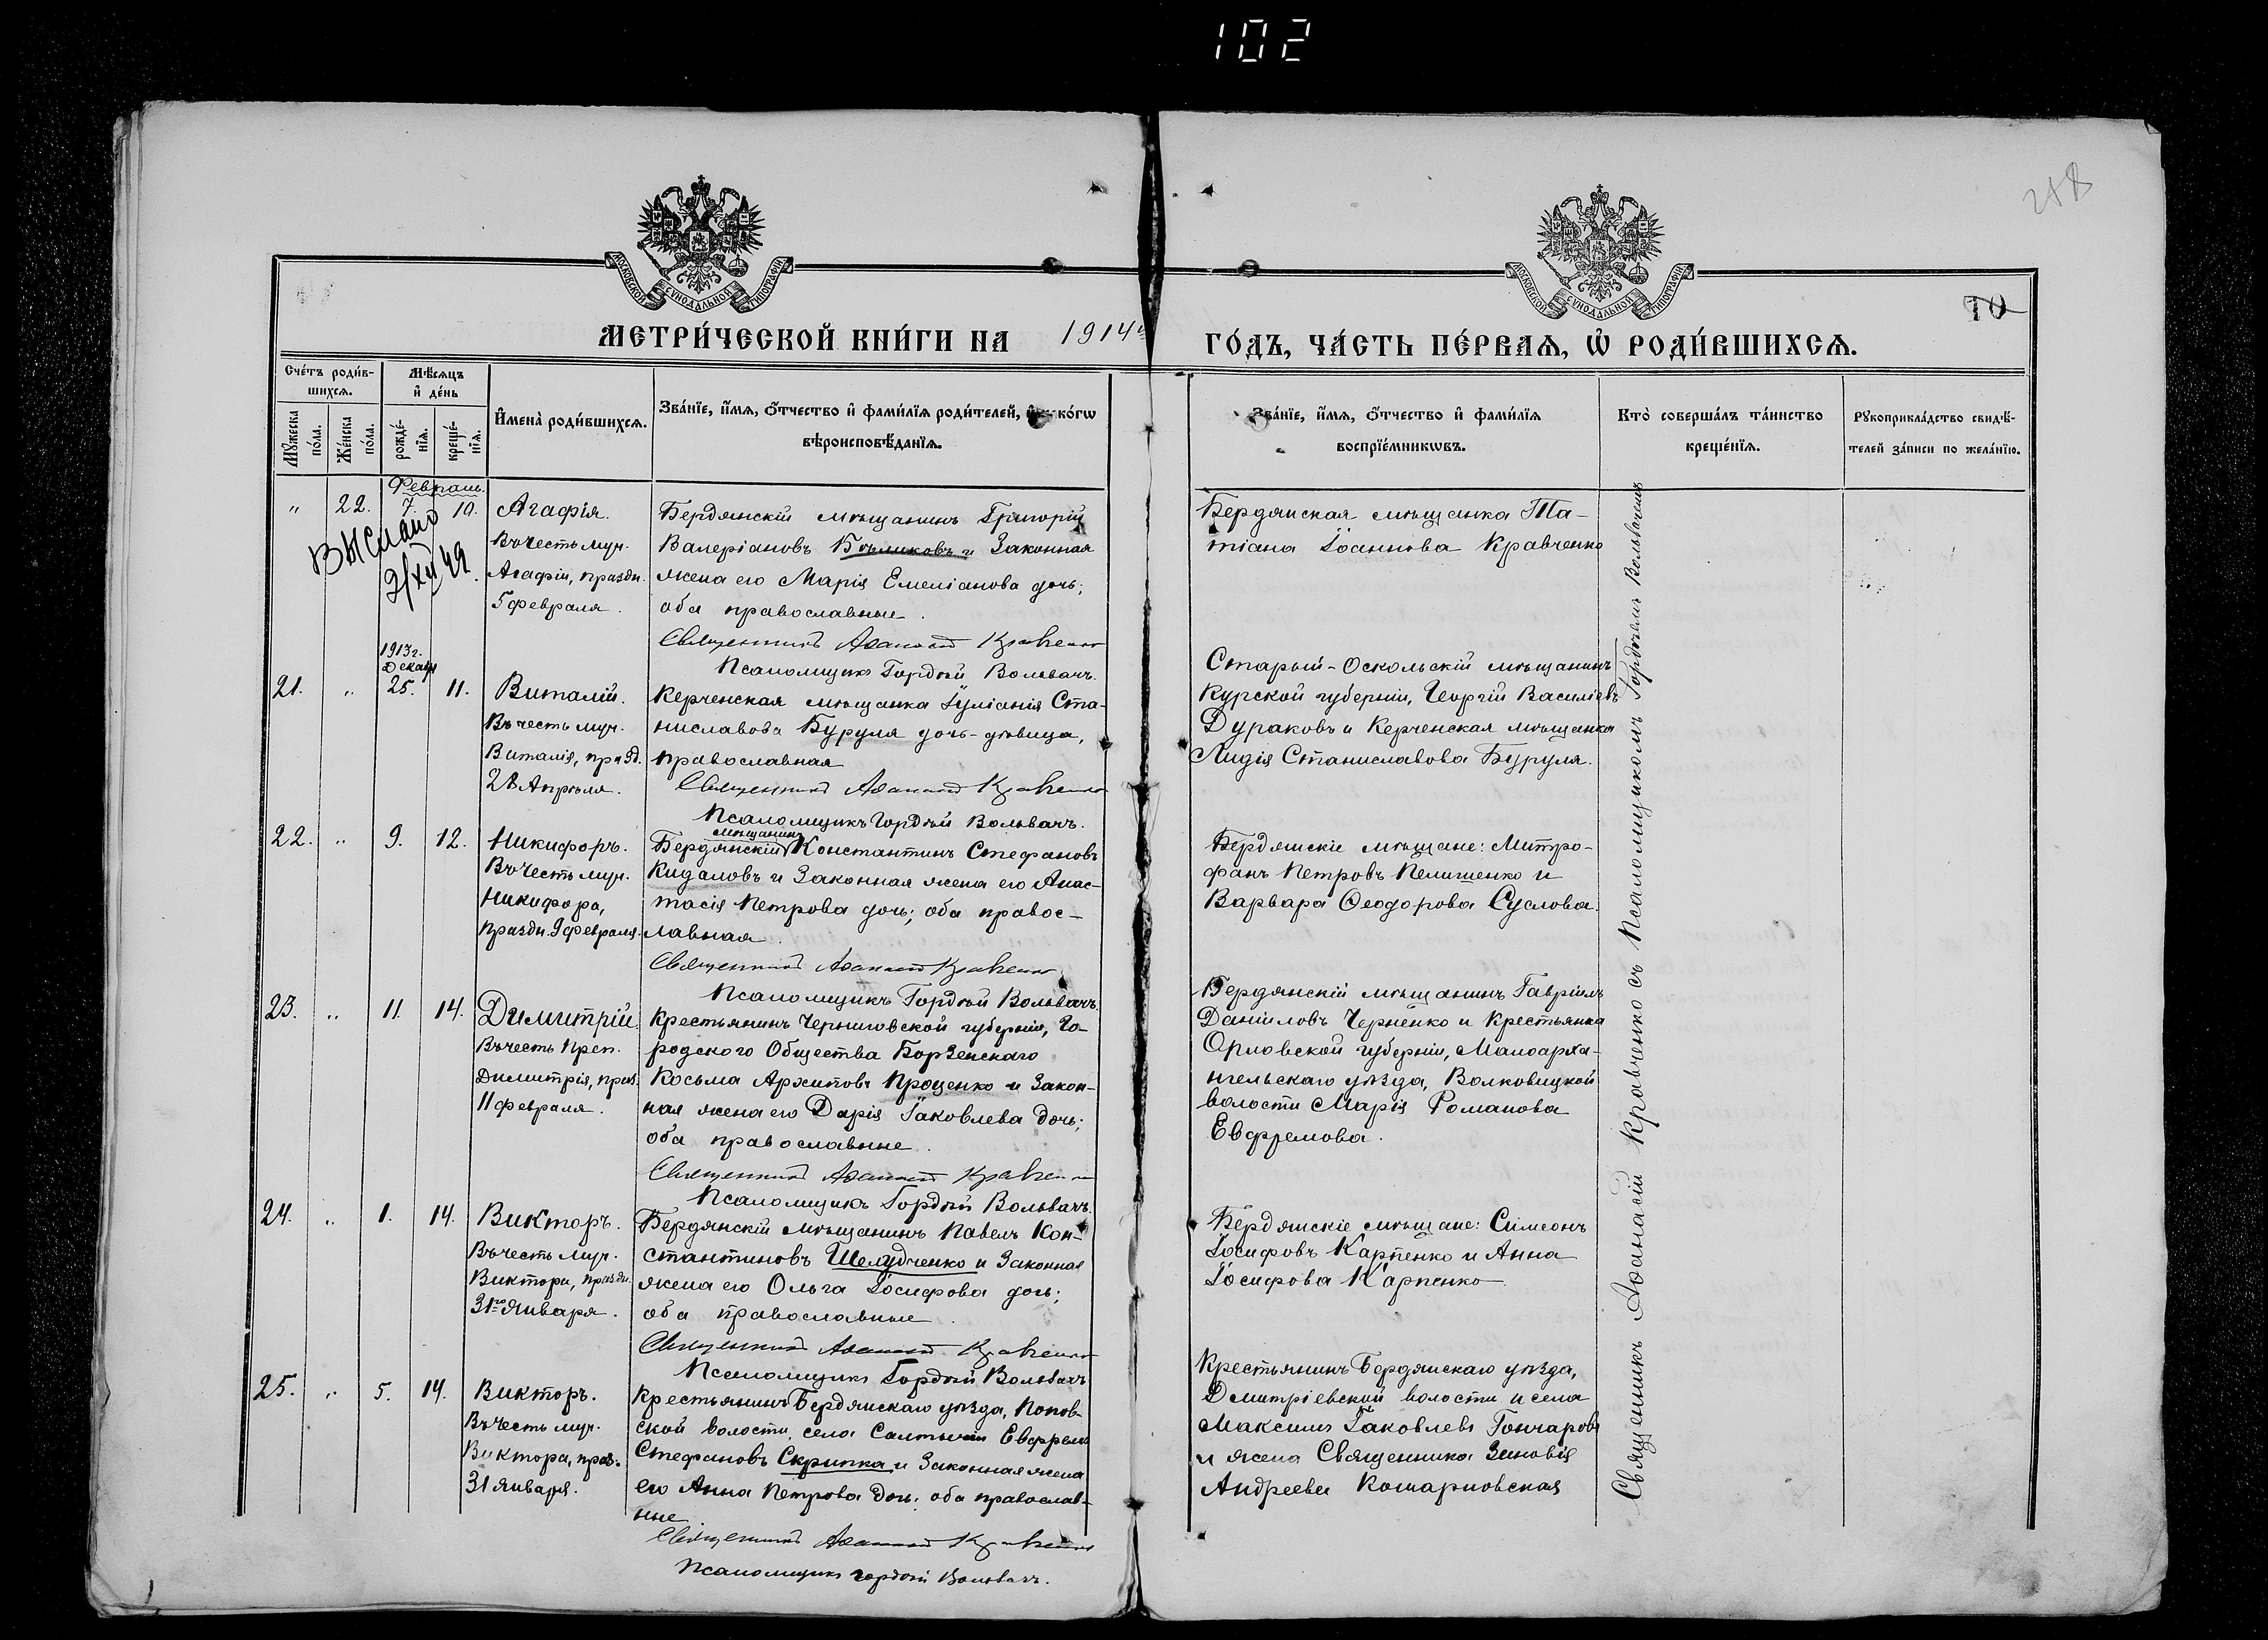 102
258
МОСКОВСКОЙ СѴНОДАЛЬНОЙ ТИПОГРАФІИ
МОСКОВСКОЙ СѴНОДАЛЬНОЙ ТИПОГРАФІИ
70
МЕТРИ́ЧЕСКОЙ КНИ́ГИ НА 1914й ГО́ДЪ, ЧА́СТЬ ПЕ́РВАѦ, Ѡ҆ РОДИ́ВШИХСѦ.
Сче́тъ роди́вшихсѧ.
Мꙋ́жеска по́ла.
Же́нска по́ла.
Мѣ́сѧцъ и҆ де́нь
рожде́нїѧ.
креще́нїѧ.
И҆мена̀ роди́вшихсѧ.
Зва́нїе, и҆́мѧ, ѻ҆́тчество и҆ фами́лїѧ роди́телей, и҆ ко́гѡ
вѣроисповѣ́данїѧ.
Зва́нїе, и҆́мѧ, ѻ҆́тчество и҆ фами́лїѧ
воспрїе́мникѡвъ.
Кто̀ соверша́лъ та́инство
креще́нїѧ.
Рꙋкоприкла́дство свидѣ́телей за́писи по жела́нїю.
Февраль.
" 22. 7. 10. Агафія.
Въ честь муч.
Агафіи, праздн.
5 февраля.
выслано
2/XII 49
Бердянскій мѣщанинъ Григорій
Валеріановъ Бѣликовъ и законная
жена его Марія Емеліанова дочь;
оба православные.
Священникъ Аѳанасій Кравченко
Псаломщикъ Гордѣй Вольвачъ.
Бердянская мѣщанка Та-
тіана Іоаннова Кравченко
1913 г.
Декабр
21. " 25. 11. Виталій.
Въ честь муч.
Виталія, празд.
28 Апрѣля.
Керченская мѣщанка Іуліанія Ста-
ниславова Буруля дочь-дѣвица,
православная
Священникъ Аѳанасій Кравченко
Псаломщикъ Гордѣй Вольвачъ.
Старый-Оскольскій мѣщанинъ
Курской губерніи, Георгій Василіевъ
Дураковъ и Керченская мѣщанка
Лидія Станиславова Буруля.
22. " 9. 12. Никифоръ.
Въ честь муч.
Никифора,
праздн. 9 февраля.
мѣщанинъ
Бердянскій Константинъ Стефановъ
Кидаловъ и законная жена его Анас-
тасія Петрова дочь; оба правос-
лавная.
Священникъ Аѳанасій Кравченко
Псаломщикъ Гордѣй Вольвачъ.
Бердянскіе мѣщане: Митро-
фанъ Петровъ Пелишенко и
Варвара Ѳеодорова Суслова.
23. " 11. 14. Димитрій.
Въ честь Преп.
Димитрія, праз.
11 февраля.
Крестьянинъ Черниговской губерніи, Го-
родского Общества Борзенскаго
Косьма Архиповъ Проценко и закон-
ная жена его Дарія Іаковлева дочь;
оба православные.
Священникъ Аѳанасій Кравченко
Псаломщикъ Гордѣй Вольвачъ.
Бердянскій мѣщанинъ Гавріилъ
Даніиловъ Черненко и крестьянка
Орловской губерніи, Малоарха-
нгельскаго уѣзда, Волковицкой
волости Марія Романова
Евфремова.
24. " 1. 14. Викторъ.
Въ честь муч.
Виктора, праздн.
31го Января.
Бердянскій мѣщанинъ Павелъ Кон-
стантиновъ Шелудченко и законная
жена его Ольга Іосифова дочь;
оба православные.
Священникъ Аѳанасій Кравченко
Псаломщикъ Гордѣй Вольвачъ
Бердянскіе мѣщане: Симеонъ
Іосифовъ Карпенко и Анна
Іосифова Карпенко
25. " 5. 14. Викторъ.
Въ честь муч.
Виктора, праз.
31 Января.
Крестьянинъ Бердянскаго уѣзда, Попов-
ской волости, села Салтычіи Евфремъ
Стефановъ Скрипка и законная жена
его Анна Петрова дочь; оба православ-
ные.
Священникъ Аѳанасій Кравченко
Псаломщикъ Гордѣй Вольвачъ.
Крестьянинъ Бердянскаго уѣзда,
Дмитріевской волости и села
Максимъ Іаковлевъ Гончаровъ
и жена Священника Зиновія
Андреева Комарновская
Священникъ Аѳанасій Кравченко съ Псаломщикомъ Гордѣемъ Вольвачемъ